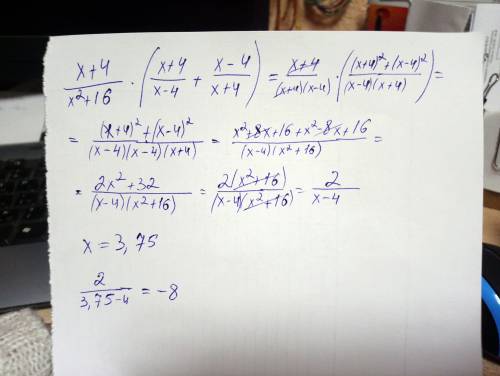 (x+4)/(x²+16) · ((x+4)/(x-4) + (x-4)/(x+4)) = (x+4)/((x+4)(x-4)) · (((x+4)²+(x-4)²)/((x-4)(x+4))) =
= ((x+4)²+(x-4)²)/((x-4)(x-4)(x+4)) = (x²+8x+16+x²-8x+16)/((x-4)(x²+16)) =
= (2x²+32)/((x-4)(x²+16)) = (2(x²+16))/((x-4)(x²+16)) = 2/(x-4)
x = 3,75
2/(3,75-4) = -8